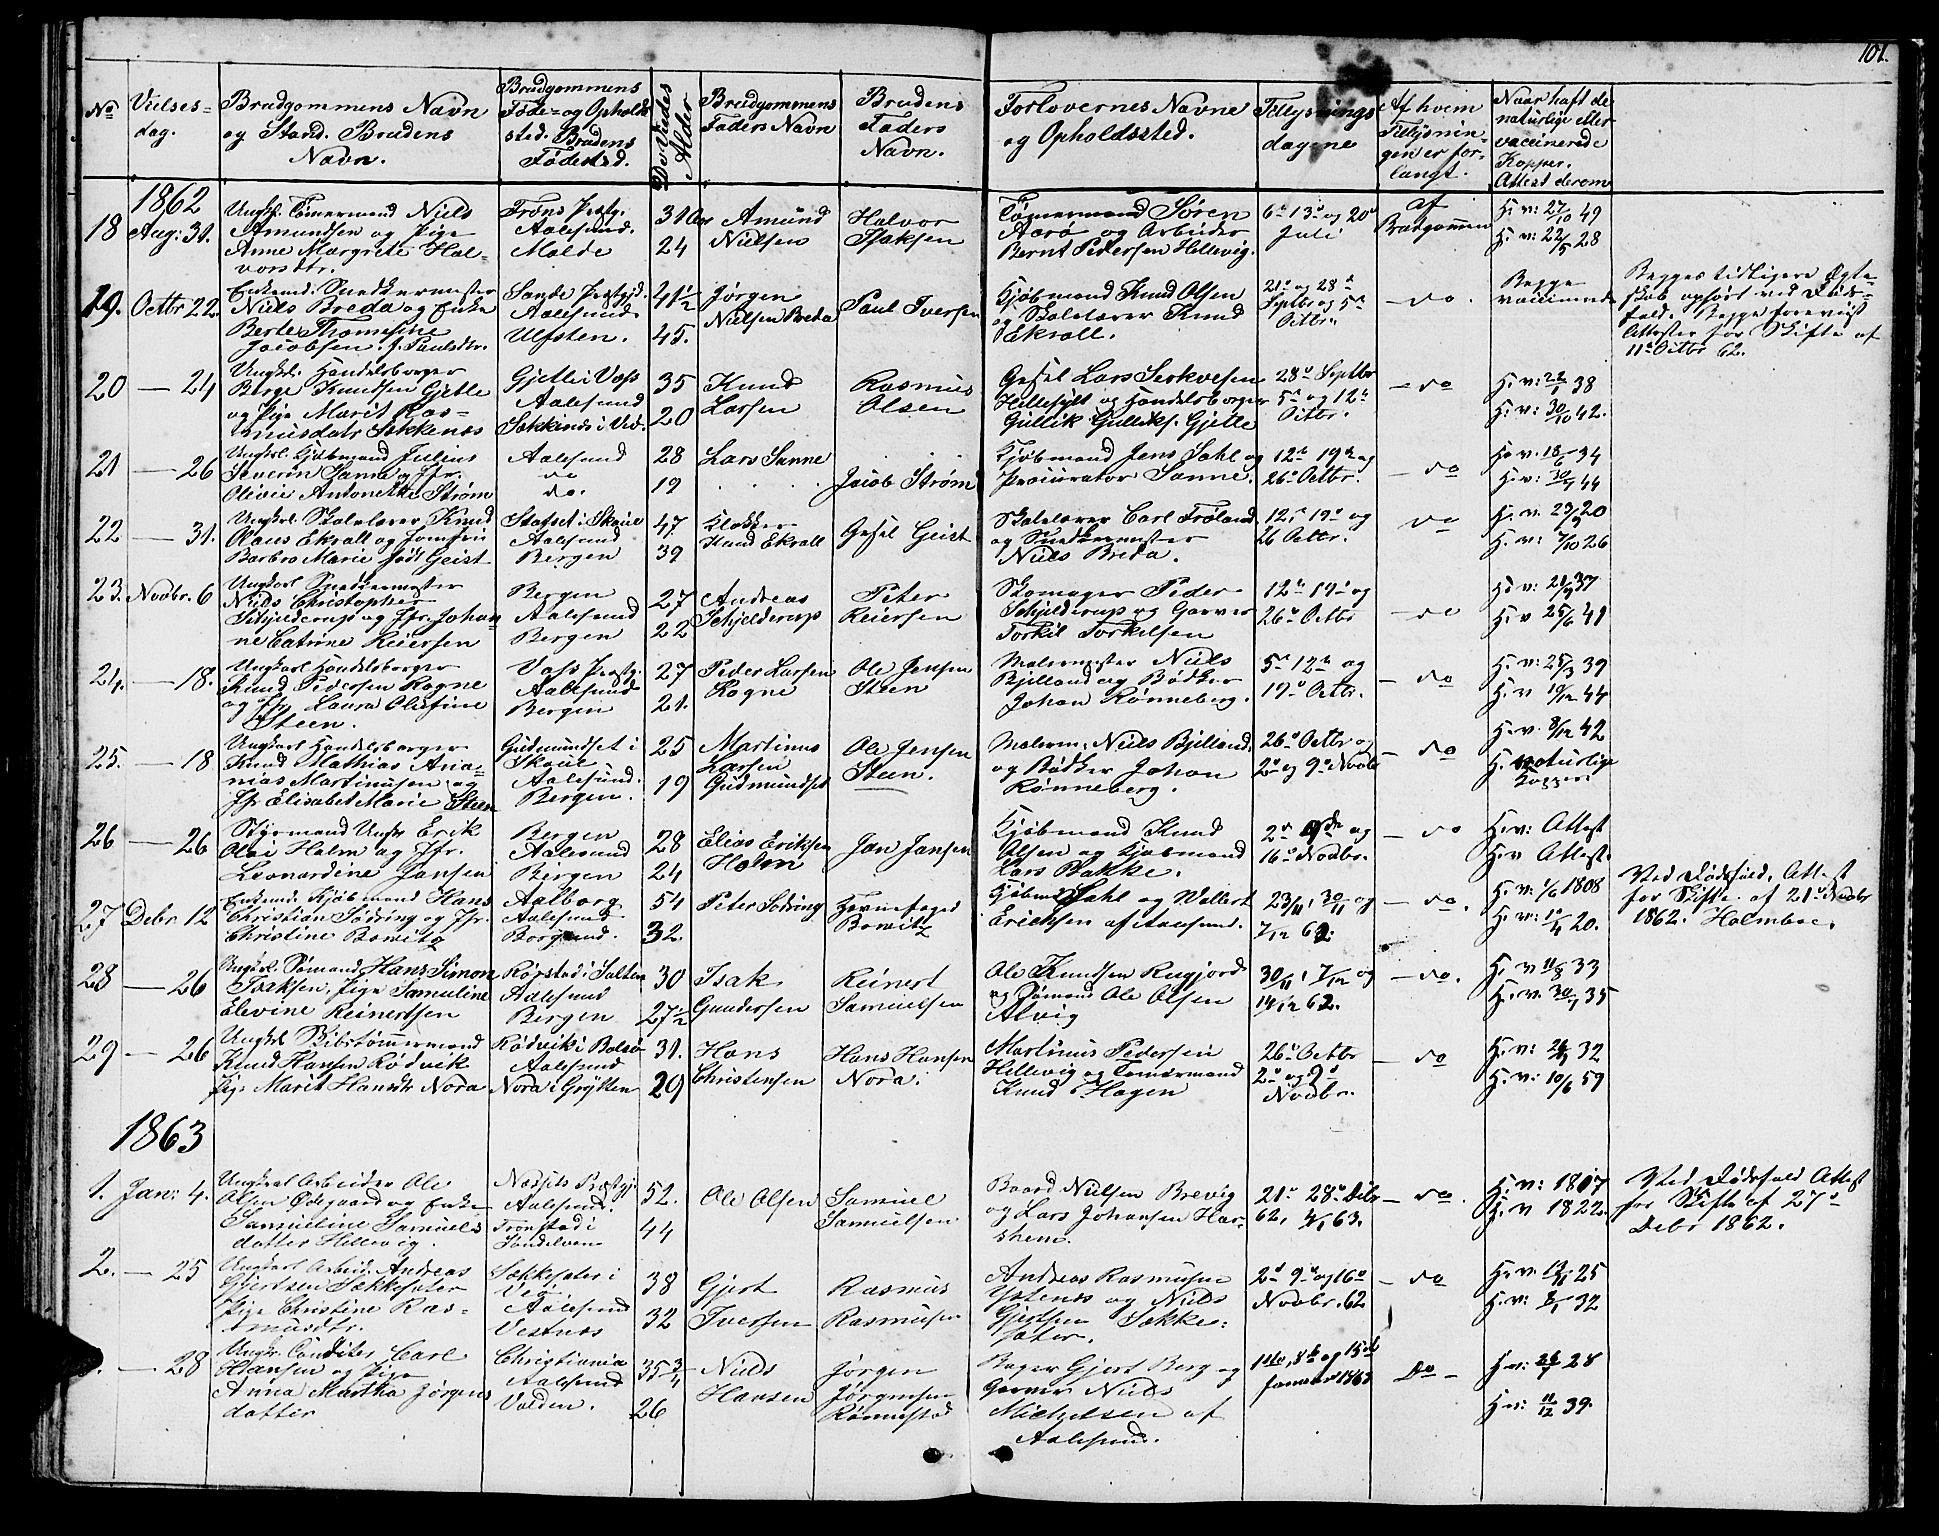 101.
No
Vielses-
dag.
Brudgommens Navn
og Stand. Brudens
Navn.
Brudgommens
Føde- og Opholds
sted. Brudens
Fødested.
De Viedes
Alder
Brudgommens
Faders Navn
Brudens
Faders
Navn.
Forlovernes Navne
og Opholdssted.
Tillysnings
dagene
Af hvem
Tillysnin-
gen er for-
langt.
Naar haft de
naturlige eller
vaccinerede
Kopper.
Attest derom
1862
18 Aug: 31.
Ungk. Tømermand Niels
Amundsen og Pige
Anne Margrete Hal-
vorsdtr.
Trons Prstg.
Aalesund.
Molde
31
24
Amund
Nielsen
Halvor
Isaksen
Tømermand Søren
Aarø og Arbeider
Bernt Pedersen Hellevig.
6te 13de og 20de
Juli
af
Brudgommen
H. v: 27/10 49
H. v: 22/5 28
19. Octbr 22.
Enkemd. Snedkermester
Niels Breda og Enke
Berte Thomesine
Jacobsen f. Paulsdtr.
Sande Prstgjd.
Aalesund
Ulfsten.
41½
45.
Jørgen
Nielsen Breda
Paul Iversen
Kjøbmand Knud Olsen
og Skolelærer Knud
Ekroll.
21de og 28de
Septbr og 5te
Octbr.
do.
Begge
vaccinerede
Begges tidligere Ægte-
skab ophørt ved Døds-
fald. Begge foreviist
Attester for Skifte af
11te Octbr 62.
20 — 24
Ungkl. Handelsborger
Berge Knudsen Gjelle
og Pige Marit Ras-
musdatr Sekkenæs
Gjelle i Voss
Aalesund
Sekkenæs i Veø.
35
20
Knud
Larsen
Rasmus
Olsen
Gesel Lars Serkvesen
Hellesylt og Handelsborger
Gullik Gulliks. Gjelle
28de Septbr
5te og 12te
Octbr.
do
H. v: 22/1 38
H. v: 30/10 42.
21 — 26
Ungkl. Kjøbmand Julius
Severin Sanne og Jfr.
Olivie Antonette Strøm
Aalesund
do
do.
28
19
Lars Sanne
Jacob Strøm
Kjøbmand Jens Dahl og
Procurator Sanne.
12te 19de og
26de Octbr.
do
H. v. 18/6 34
H. v: 30/7 44
22 — 31.
Ungkl. Skolelærer Knud
Olaus Ekroll og Jomfru
Barbro Marie født Geist
Stafset i Skoue
Aalesund
Bergen
47.
39
Klokker
Knud Ekroll
Gesel Geist
Skolelærer Carl Frøland
og Snedkermester
Niels Breda.
12te 19de og
26 Octbr.
do
H. v. 23/9 20
H. v: 7/10 26
23. Novbr. 6
Ungkarl Snedkermester
Niels Christopher
Schjelderup og Jfr. Johan-
ne Catrine Reiersen
Bergen
Aalesund
Bergen
27
22
Andreas
Schjelderup
Peter
Reiersen
Skomager Peder
Schjelderup og Garver
Torkil Torkelsen
12te 19de og
26de Octbr
do
H. v: 21/9 37
H. v 25/6 41
24. — 18.
Ungkarl Handelsborger
Knud Pedersen Rogne
og Jfr. Laura Olufine
Steen.
Voss Prstg.
Aalesund
Bergen
27
21.
Peder Larsen
Rogne
Ole Jensen
Steen
Malermester Niels
Bjelland og Bødker
Johan Rønneberg.
5te 12te og
19de Octbr.
do
H. v: 25/3 39
H. v 19/12 44
25. — 18
Ungkarl Handelsborger
Knud Mathias Ana-
nias Martinusen og
Jfr Elisabet Marie Steen
Gudmundset i
Skoue
Aalesund.
Bergen.
25
19
Martinus
Larsen
Gudmundset
Ole Jensen
Steen.
Malerm. Niels Bjelland.
og Bødker Johan
Rønneberg.
26de Octbr og
2de og 9de Novbr
do
H. v. 8/12 42
H. naturlige
Kopper
26 — 26
Styrmand Ungk Erik
Olai Holm og Jfr.
Leonardine Jansen
Bergen
Aalesund
Bergen
28
24
Elias Eriksen
Holm
Jan Jansen
Kjøbmand Knud
Olsen og Kjøbmand
Lars Bakke.
2de 9de og
16de Novbr.
do
H. v: Attest
H. v Attest.
27 Debr 12
Enkemd. Kjøbmand Hans
Christian Sødring og Jfr.
Christine Bowitz
Aalborg
Aalesund
Borgund.
54
32.
Peter Sødring
Havnefoged
Bowitz
Kjøbmd Dahl og Wellert
Ericksen af Aalesund.
23/11, 30/11 og
7/12 62
do.
H. v: 1/6 1808
H. v: 11/4 20.
Ved Dødsfald. Attest
for Skifte af 21de Novbr
1862. Holmboe.
28 — 26
Ungkl. Sømand Hans Simon
Isaksen, Pige Samuline
Elevine Reinertsen
Rørstad i Salten
Aalesund
Bergen
30
27½
Isak
Gundersen
Reinert
Samuelsen
Ole Knudsen Rusgjord
og Sømand Ole Olsen
Alvig
30/11, 7/12 og
14/12 62.
do.
H. v 11/8 33
H. v. 30/7 35
29 — 26
Ungkl. Skibstømmermand
Knud Hansen Rødvik
Pige Marit Hansdtr Nora
Rødvik i Bolsø
Aalesund
Nora i Grytten
31.
29
Hans
Christensen
Hans Hansen
Nora.
Martinus Pedersen
Hellevig og Tømermand
Knud Hagen
26de Octbr
2de og 9de
Novbr.
do
H. v: 32
H. v: 10/6 59
1863
1. Jan: 4.
Ungkarl Arbeider Ole
Olsen Ødegaard og Enke
Samueline Samuels
datter Hellevig.
Nessets Prstgj.
Aalesund.
Tronstad i
Søndelven
52.
44
Ole Olsen
Samuel
Samuelsen
Baard Nielsen Brevig
og Lars Johansen Har-
shem.
21de 28de Debr
62, 4/1 63.
do.
H. v: 1817
H. v 1822.
Ved Dødsfald Attest
for Skifte af 27de
Debr 1862.
2. — 25
Ungkarl Arbeid. Andreas
Gjertsen Sekkesæter
Pige Christine Ras-
musdtr.
Sekkesæter i
Veø
Aalesund
Vestnæs
38
32
Gjert
Iversen
Rasmus
Rasmusen
Andreas Rasmusen
Ystenes og Niels
Gjertsen Sekke-
sæter.
2de 9de og 16de
Novbr. 62
do
H. v. 25
H. v: 8/1 32
— 28
Ungk. Conditer Carl
Hansen og Pige
Anna Martha Jørgens
datter
Christiania
Aalesund
Volden.
35¾
26
Niels
Hansen
Jørgen
Jørgensen
Rønnestad
Bager Gjert Berg og
Garver Niels
Michelsen af
Aalesund.
1ste, 8de og 15de
Januar 1863
Do
H. v: 28
H. v: 11/12 39.